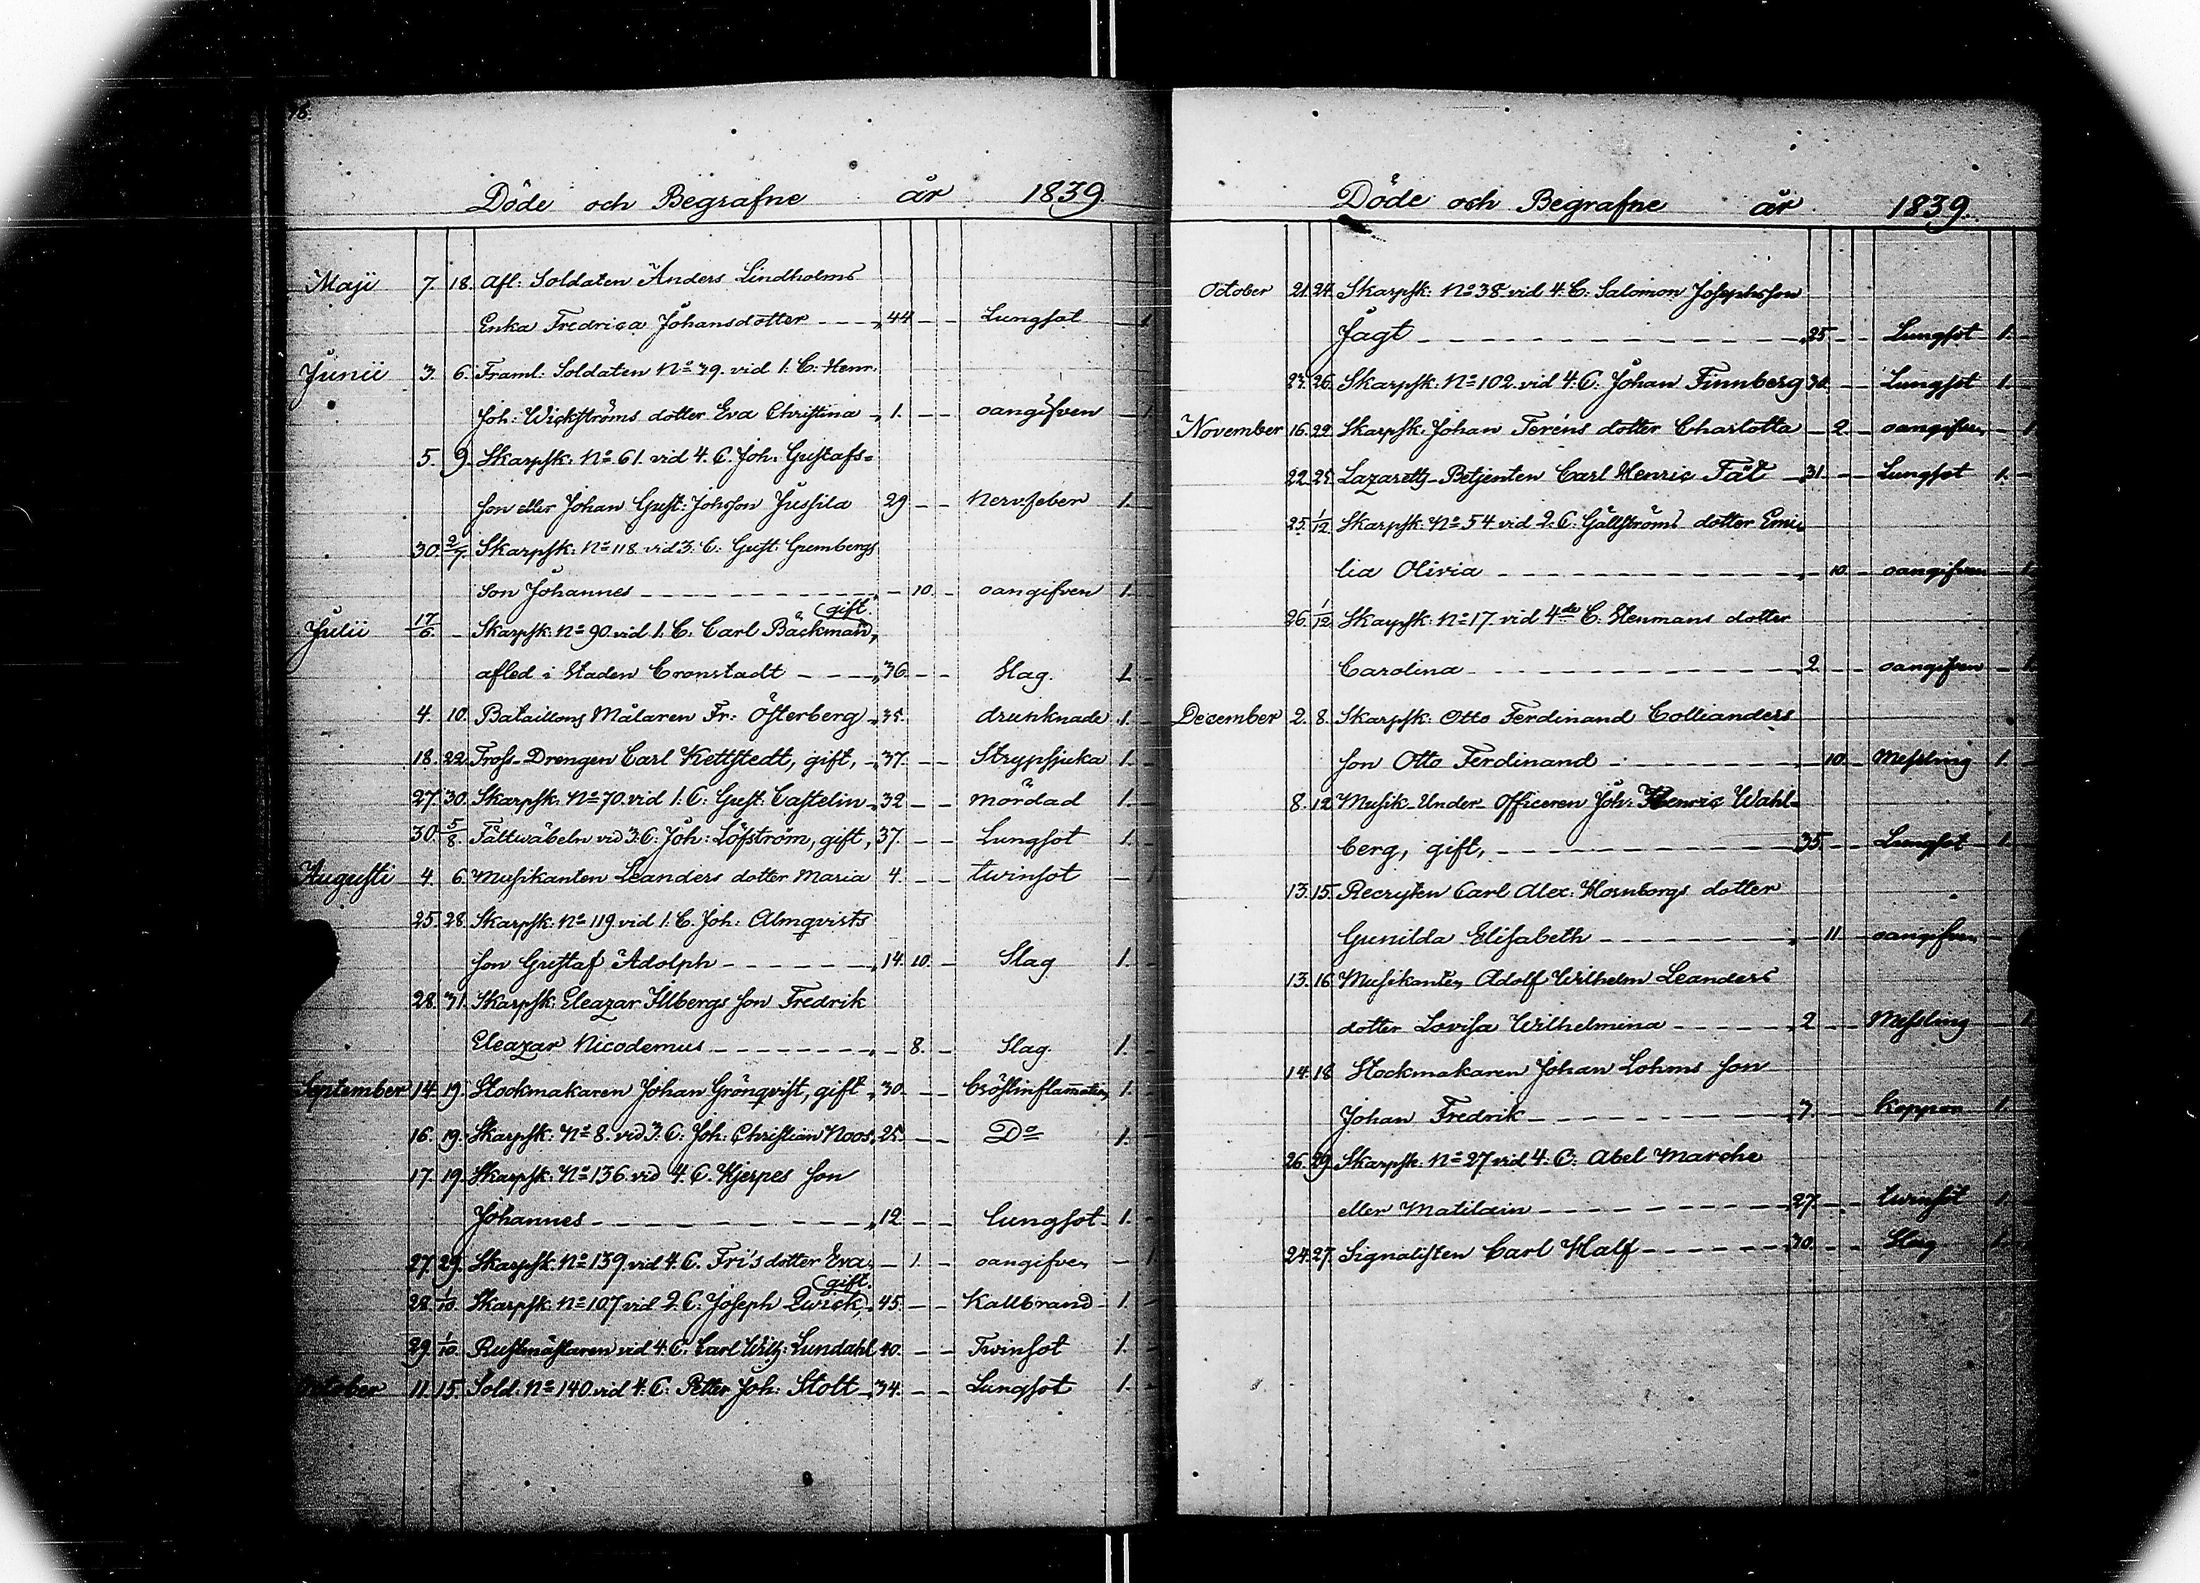 Döde och Begrafne år 1839.
Maji 7. 18. Afl: Soldaten Anders Lindholms
Enka Fredrica Johansdotter - - - 44 - - Lungsot - 1.
Junii 3. 6. Framl: Soldaten No 39. vid 1. C: Henr.
Joh: Wickströms dotter Eva Christina - 1. - - oangifven - 1.
5. 9. Skarpsk: No 61. vid 4. C. Joh. Gustafs=
son eller Johan Gust: Johsson Jussila 29 - - Nervfeber 1. -
30. 2/7. Skarpsk: No 118 vid 3. C: Gust: Grembergs
Son Johannes - - - - - 10. - oangifven 1.
Julii 17/6. - Skarpsk: No 90 vid 1. C. Carl Bäckman, gift.
afled i Staden Cronstadt - - - 36. - - Slag. 1. -
4. 10. Bataillons Målaren Fr: Österberg - 35. drunknade 1. -
18. 22. Tross-Drengen Carl Kettstedt, gift, - 37. - - Strypsjuka 1. -
27. 30. Skarpsk: No 70. vid 1. C: Gust: Castelin - 32 - - mördad 1. -
30. 5/8. Fältwäbeln vid 3. C: Joh: Löfström, gift, 37. - - Lungsot 1. -
Augusti 4. 6. Musikanten Leanders dotter Maria 4. - - twinsot - 1
25. 28. Skarpsk: No 119. vid 1. C. Joh: Almqvists
son Gustaf Adolph - - - - - 14. 10. - Slag 1. -
28. 31. Skarpsk: Eleazar Illbergs son Fredrik
Eleazar Nicodemus - - - - - - 8. - Slag. 1. -
September 14. 19. Stockmakaren Johan Grönqvist, gift - 30. - - bröstinflamation 1. -
16. 19. Skarpsk: No 8. vid 3. C: Joh: Christian Noos. 25. - - Do 1. -
17. 19. Skarpsk: No 136 vid 4. C. Hjerpes son
Johannes - - - - - 12 - - lungsot - 1. -
27. 29. Skarpsk: No 139. vid 4. C. Fri's dotter Eva, - 1. - oangifven - 1
28. 1/10. Skarpsk: No 107 vid 2. C: Joseph Qwick, gift. - 45. - - Kallbrand - 1. -
29. 1/10. Rustmästaren vid 4. C: Carl Wilh: Lundahl 40. - - Twinsot 1. -
October 11. 15. Sold. No 140. vid 4. C: Petter Joh: Stolt - 34. - - Lungsot 1. -
Döde och Begrafne år 1839.
October 21. 24. Skarpsk: No 38 vid 4. C. Salomon Josephsson
Jagt - - - - - 25 - - Lungsot 1. -
26. Skarpsk: No 102. vid 4. C: Johan Finnberg 30. - - Lungsot 1. -
November 16. 22. Skarpsk: Johan Ferén's dotter Charlotta - 2. - oangifven - 1
22. 25. Lazaretts-Betjenten Carl Henric Fält - 31. - - Lungsot 1. -
25. 1/12. Skarpsk: No 54 vid 2. C: Gällströms dotter Emi=
lia Olivia - - - - - 10. - oangifven - 1.
26. 1/12. Skarpsk: No 17. vid 4de C. Stenmans dotter
Carolina - - - - - 2. - - oangifven - 1.
December 2. 8. Skarpsk: Otto Ferdinand Collianders
son Otto Ferdinand - - - - - 10. - Messling 1. -
8. 12. Musik-Under-Officeren Joh: Henric Wahl=
berg, gift, - - - - - 35. - - Lungsot 1. -
13. 15. Recryten Carl Alex: Hornborgs dotter
Gunilda Elisabeth - - - - - 11. - oangifven -
13. 16. Musikanten Adolf Wilhelm Leanders
dotter Lovisa Wilhelmina - - - - 2. - - Messling - 1.
14. 18. Stockmakaren Johan Lohms son
Johan Fredrik - - - - - 7. - - Koppor 1. -
26. 29. Skarpsk: No 27 vid 4. C. Abel Marche
eller Matilain - - - - - 27. - - twinsot 1. -
24. 27. Signalisten Carl Half - - - - - 30. - - Slag 1. -